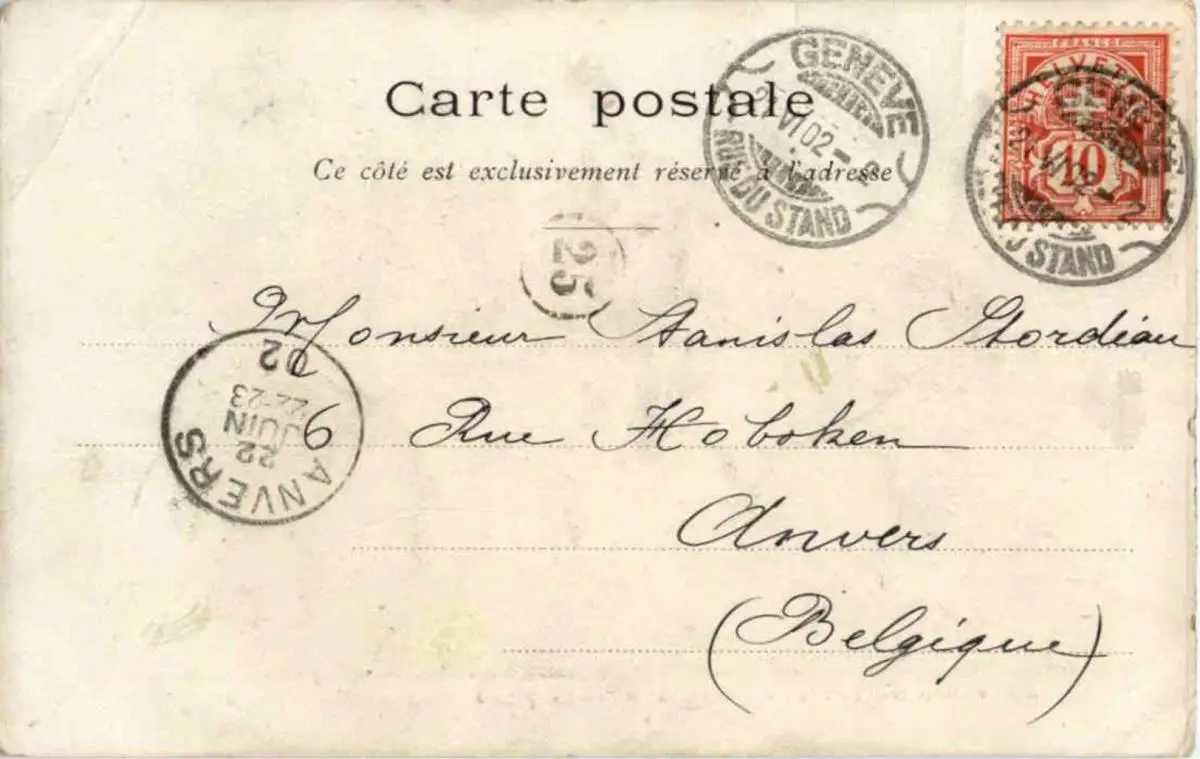 Carte postale
Ce côté est exclusivement réservé à l'adresse
GENEVE
VI 02 – 2
RUE DU STAND
FRANCO
HELVETIA
10
GENEVE
VI 02 – 2
DU STAND
25
Monsieur Stanislas Stordiau
6 Rue Hoboken
Anvers
(Belgique)
ANVERS
22
JUIN
22-23
02